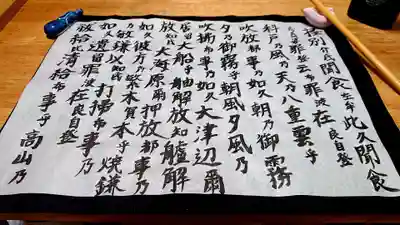 掻別介弖聞食左牟此久聞食
志弖波罪登云布罪波在良自登
科戸乃風乃天乃八重雲乎
吹放都事乃如久朝乃御霧
夕乃御霧乎朝風夕風乃
吹拂布事乃如久大津辺爾
居留大船乎舳解放知艫解
放知弖大海原爾押放都事乃
如久彼方乃繁木賀本乎焼鎌
乃敏鎌以知弖打掃布事乃
如久遺留罪波在良自登
祓給比清給布事乎高山乃